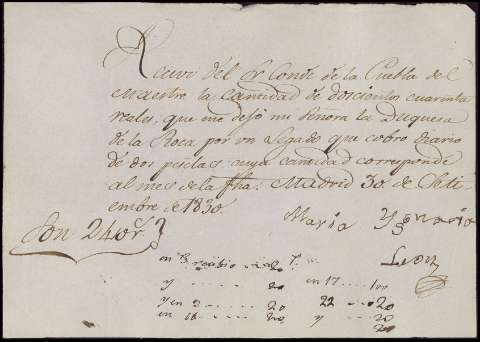 Recivi del Sr Conde de la Puebla del
Maestre la Cantidad de doscientos cuarenta
reales, que me dejó mi Señora la Duquesa
de la Roca por un Legado que cobro diario
de dos pesetas cuya cantidad corresponde
al mes de la fha. Madrid 30 de Setiembre de 1830.
Maria Ygnacia
Leon
Son 240 r.
en 8 recibio 20
y 20
y en 9 20
en 16 20
en 17 100
22 20
y 20
20